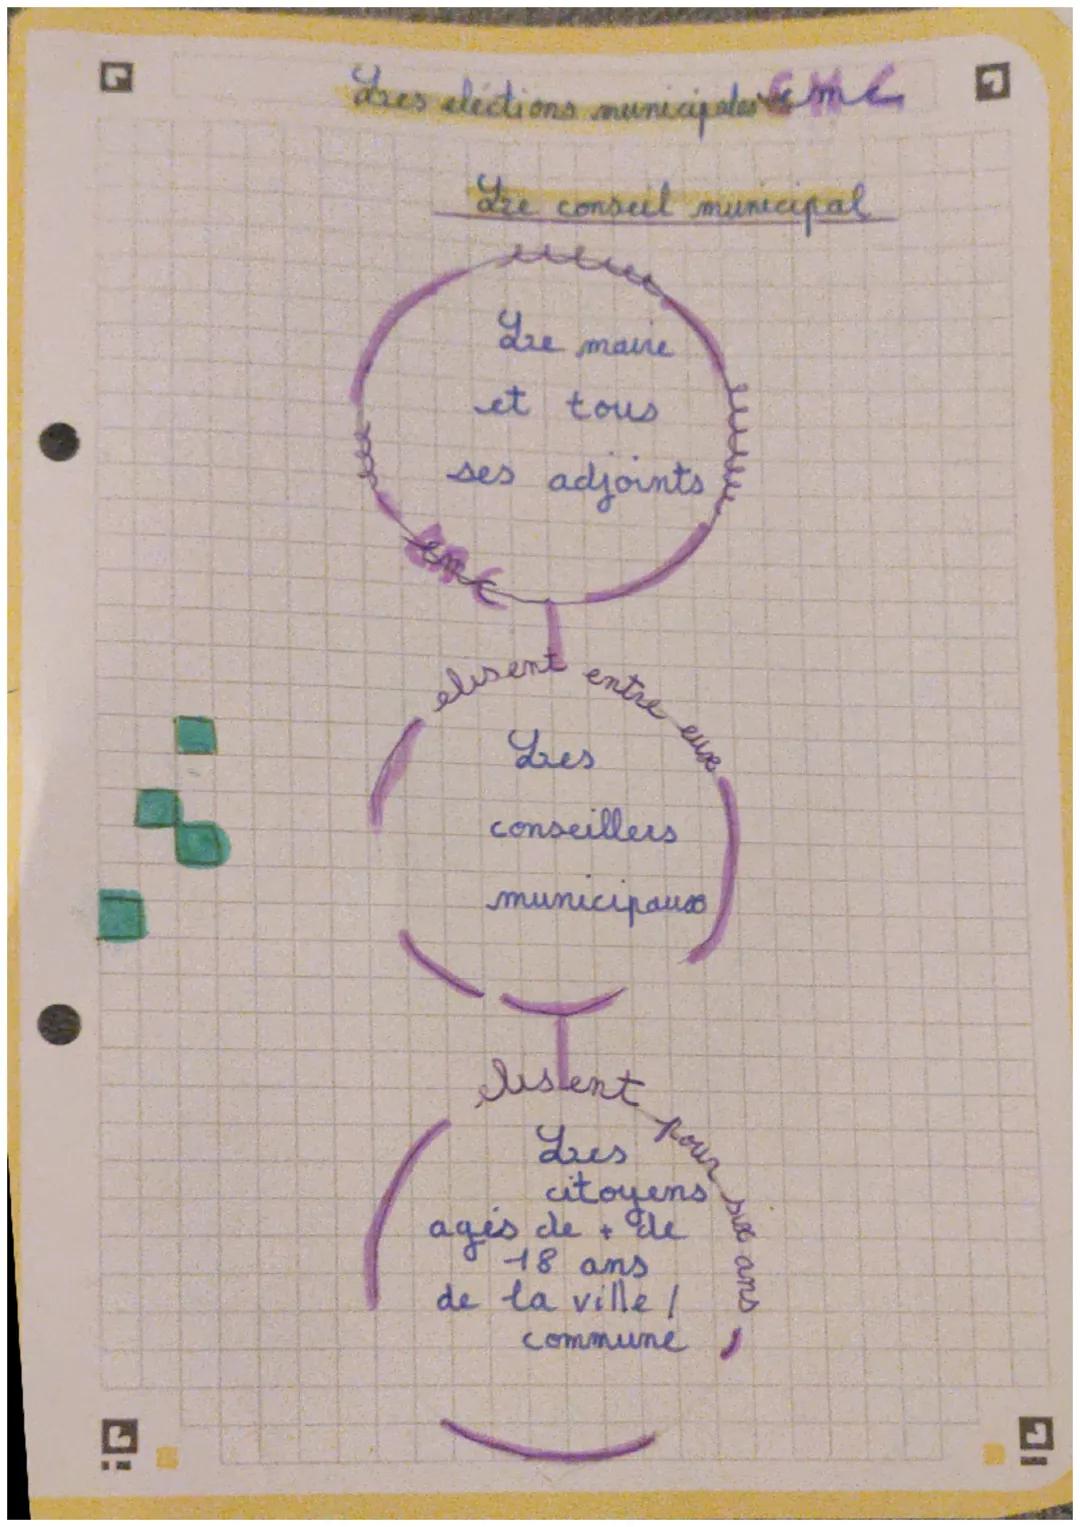 Les eléctions municipales EMC
Le conseil municipal
Le maire
et tous
ses adjoints
emc
elisent entre eux
Les
conseillers
municipaux
elisent pour six ans
Les
citoyens
agés de + de
18 ans
de la ville /
commune